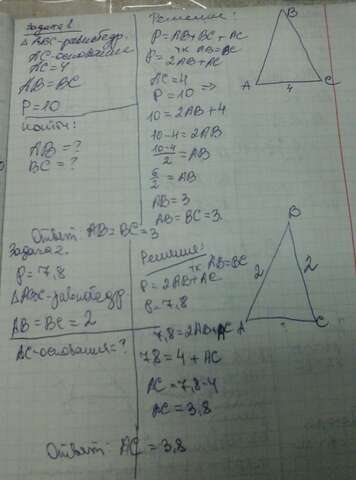 Задача 1
△ABC-равнобедр.
AC-основание
AC=4
AB=BC
P=10
Найти:
AB=?
BC=?
Решение:
P=AB+BC+AC
тк AB=BC
P=2AB+AC
AC=4
P=10 =>
10=2AB+4
10-4=2AB
10-4/2=AB
6/2=AB
AB=3
AB=BC=3.
B
A
4
C
Ответ: AB=BC=3
Задача 2.
P=7,8
△ABC-равнобедр.
AB=BC=2
AC-основание=?
Решение:
тк AB=BC
P=2AB+AC
P=7,8
7,8=2AB+AC
7,8=4+AC
AC=7,8-4
AC=3,8
B
2
2
A
C
Ответ: AC=3,8